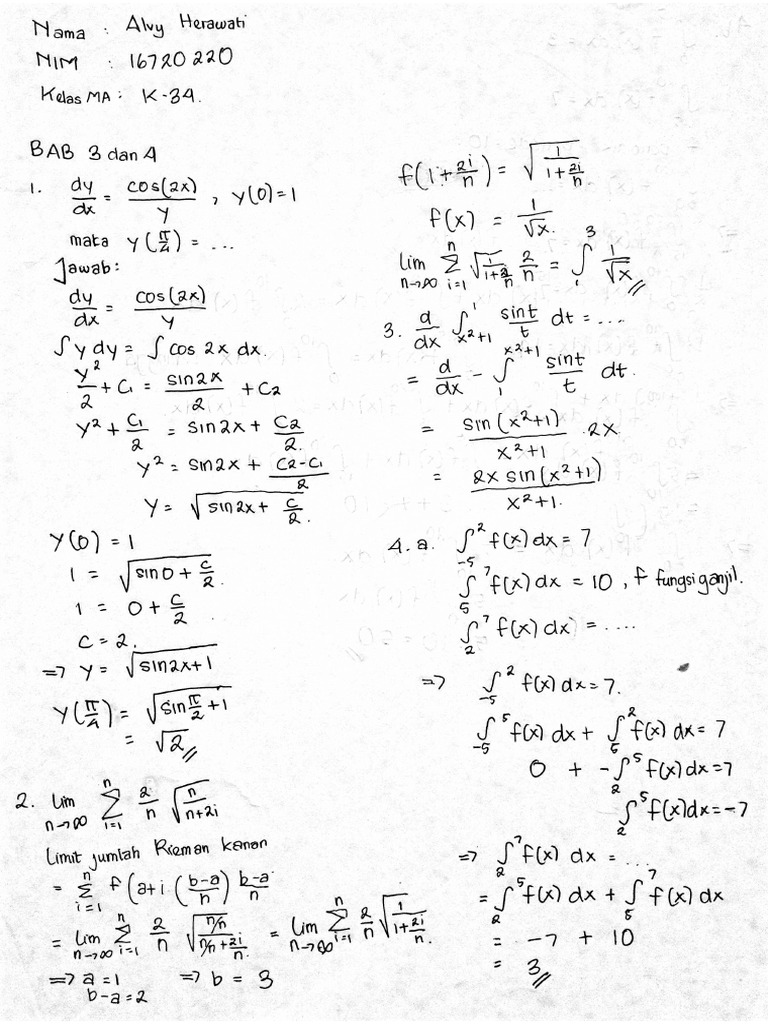 Nama : Alvy Herawati
NIM : 16720220
Kelas MA : K-34.
BAB 3 dan 4
1. dy/dx = cos(2x)/y , y(0)=1
maka y(π/4) = ...
Jawab:
dy/dx = cos(2x)/y
∫y dy = ∫cos 2x dx.
y²/2 + C₁ = sin2x/2 + C2
y² + C₁/2 = sin2x + C2/2.
y² = sin2x + (C2-C₁)/2
y = √(sin2x + C/2).
y(0) = 1
1 = √(sin0 + C/2).
1 = 0 + C/2
C = 2.
=> y = √(sin2x+1)
y(π/4) = √(sin π/2 +1)
= √2 //
2. lim n→∞ n Σ i=1 2/n √(n/(n+2i))
Limit jumlah Rieman kanan
= n Σ i=1 f(a+i((b-a)/n)) (b-a)/n
= lim n→∞ n Σ i=1 2/n √((n/n)/(n/n + 2i/n)) = lim n→∞ n Σ i=1 2/n √(1/(1+2i/n)).
=> a = 1 => b = 3
b-a = 2
f(1+2i/n) = √(1/(1+2i/n))
f(x) = 1/√x.
lim n→∞ n Σ i=1 √(1/(1+2/n)) 2/n = ₁∫³ 1/√x //
3. d/dx ∫_{x²+1}^{1} sint/t dt = ....
= d/dx - ∫_{1}^{x²+1} sint/t dt.
= sin(x²+1)/(x²+1) . 2x.
= 2x sin(x²+1)/(x²+1).
4. a. ∫_{-5}^{2} f(x) dx = 7
∫_{5}^{7} f(x) dx = 10 , f fungsi ganjil.
∫_{2}^{7} f(x) dx) = ....
=> ∫_{-5}^{2} f(x) dx = 7.
∫_{-5}^{5} f(x) dx + ∫_{5}^{2} f(x) dx = 7
0 + -∫_{2}^{5} f(x) dx = 7
∫_{2}^{5} f(x) dx = -7
=> ∫_{2}^{7} f(x) dx = ...
= ∫_{2}^{5} f(x) dx + ∫_{5}^{7} f(x) dx
= -7 + 10
= 3 //